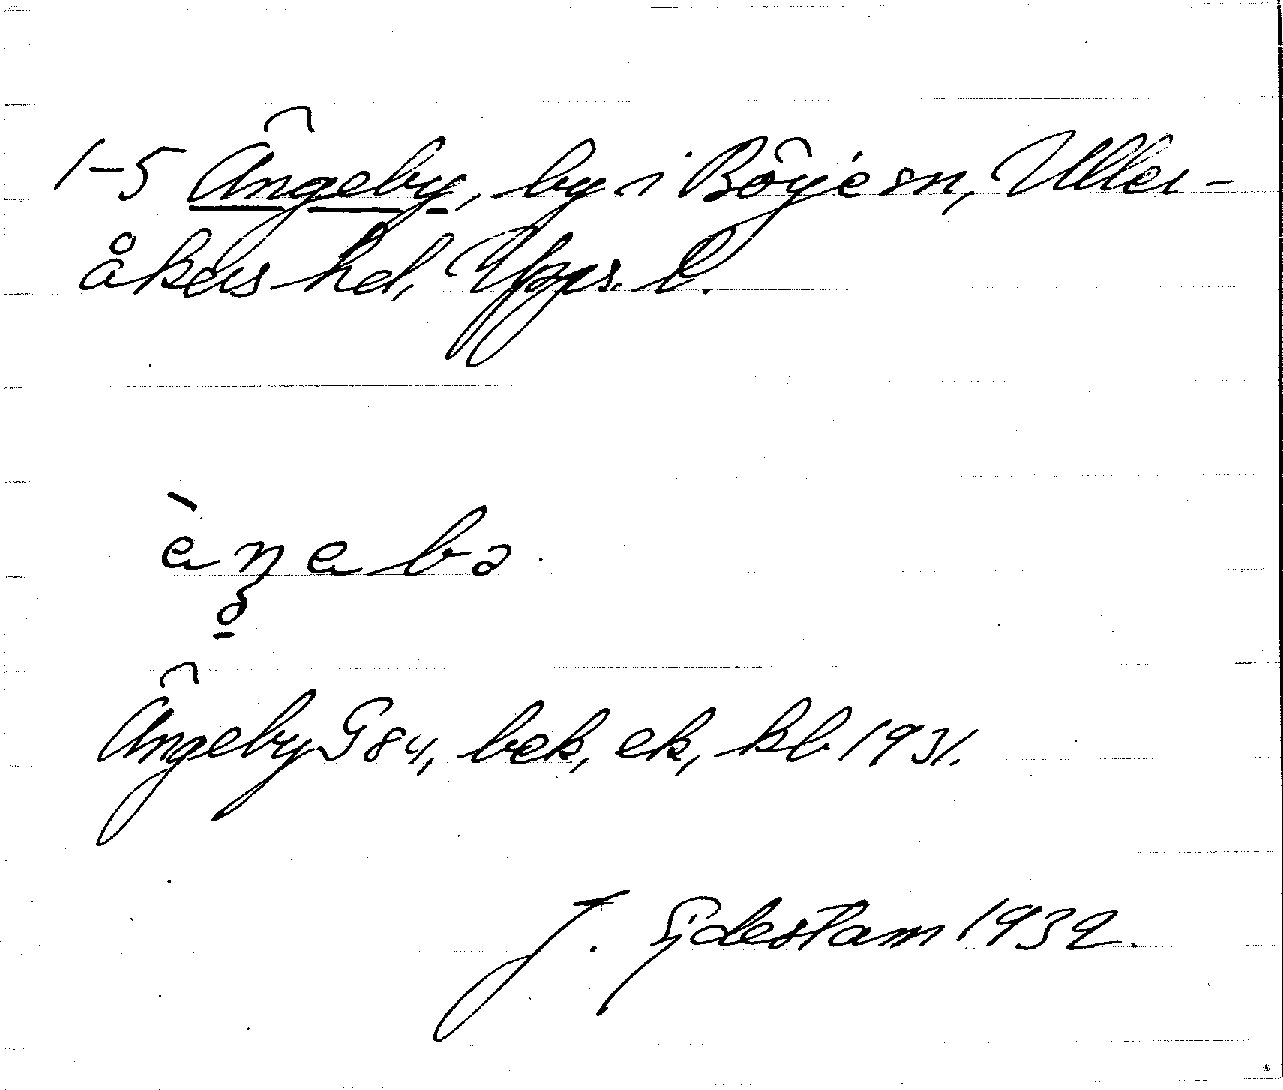 1-5 Ängeby, by i Börje sn, Uller-
åkers hd, Upps. l.
Ängeby G 84, bek, ek, kb 1931.
J. Gidestam 1932.